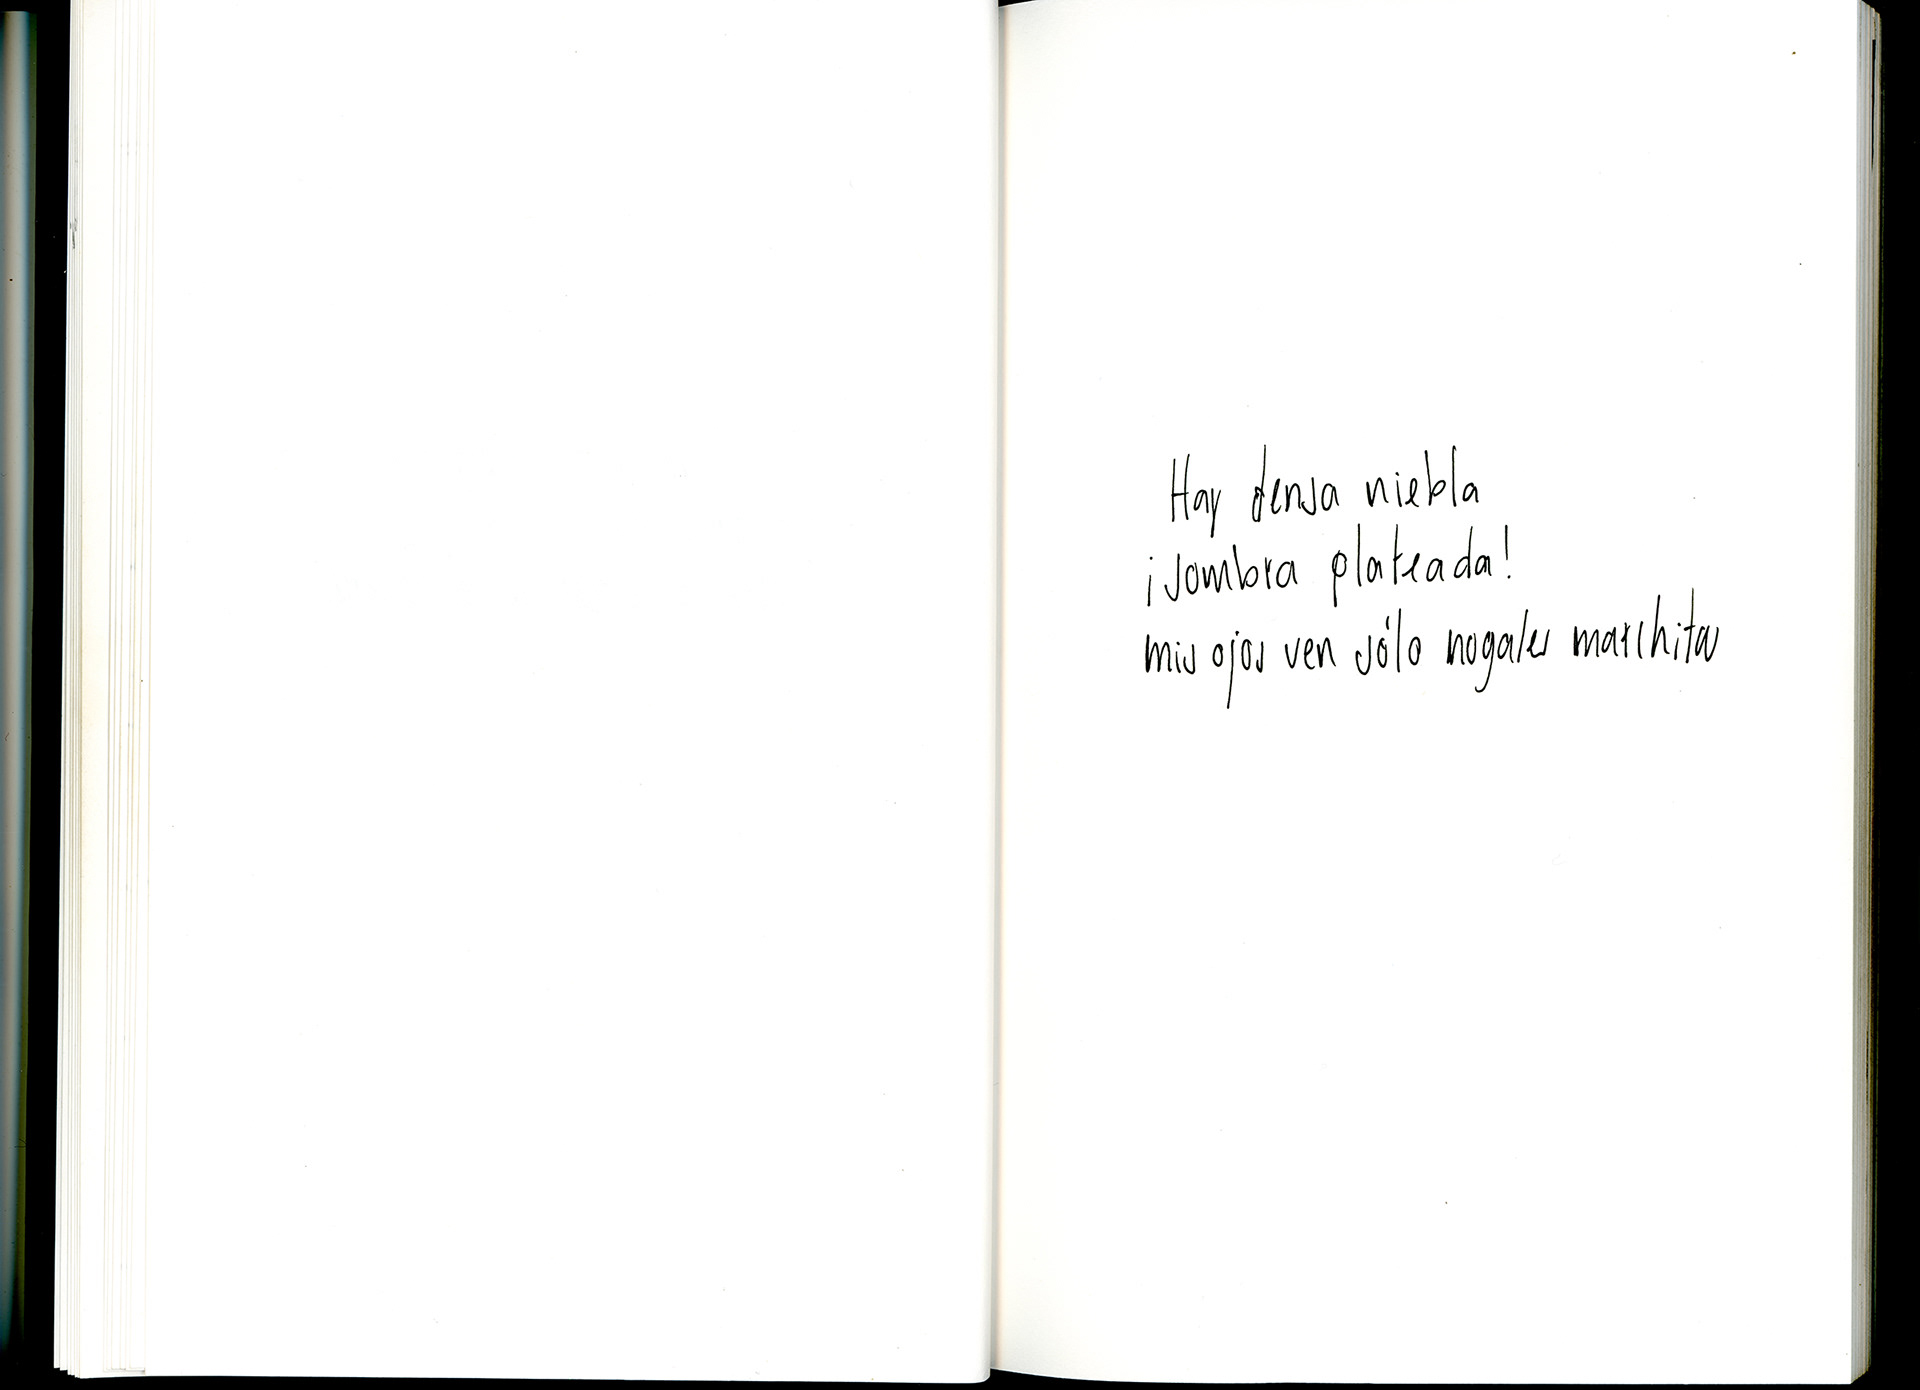 Hay densa niebla
¡sombra plateada!
mis ojos ven sólo nogales